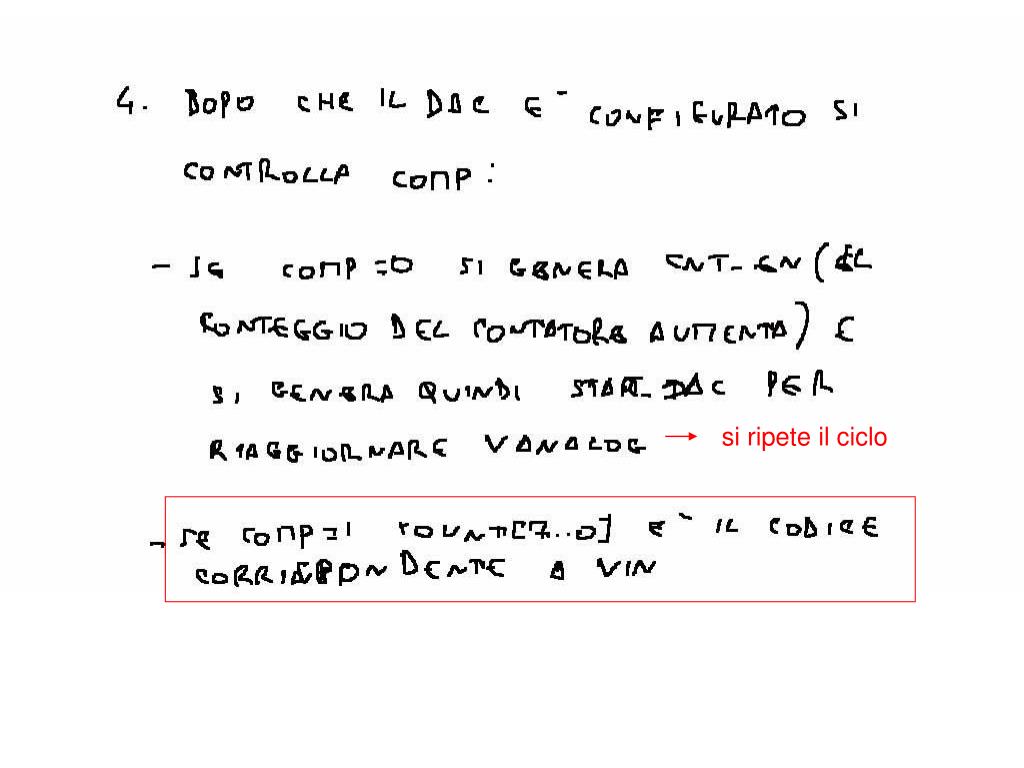 4. DOPO CHE IL DAC E` CONFIGURATO SI
CONTROLLA COMP:
- SE COMP=0 SI GENERA CNT_EN (IL
CONTEGGIO DEL CONTATORE AUMENTA) E
SI GENERA QUINDI START_DAC PER
RIAGGIORNARE VANALOG → si ripete il ciclo
- SE COMP=1 COUNT[7..0] E` IL CODICE
CORRISPONDENTE A VIN